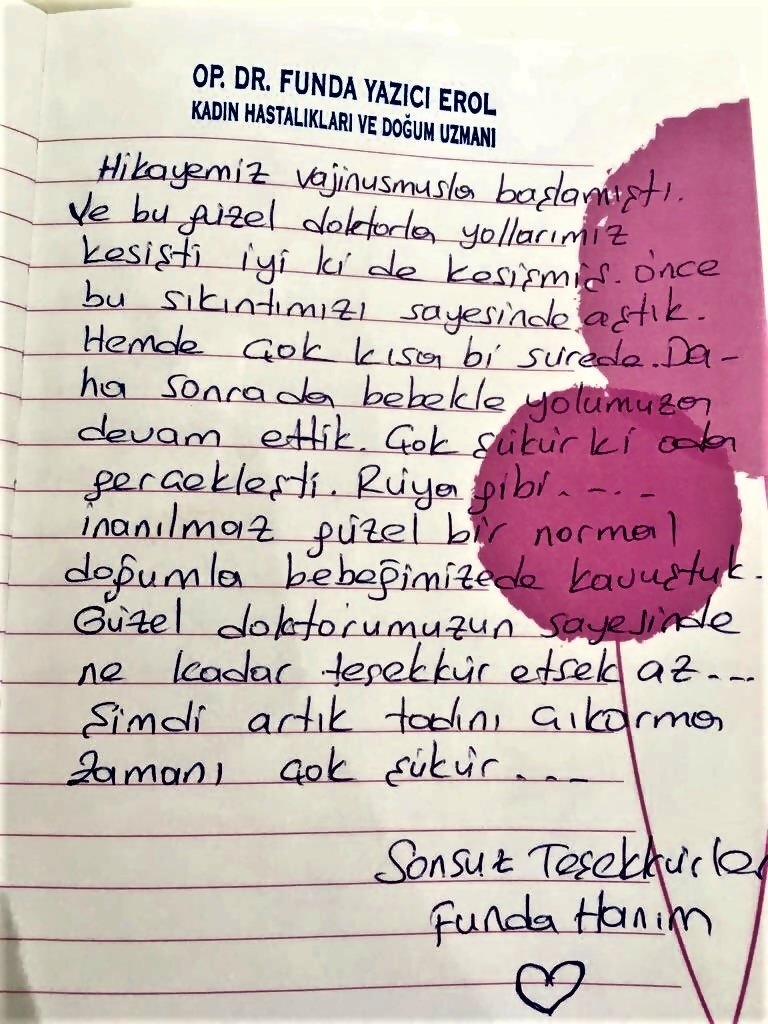 OP. DR. FUNDA YAZICI EROL
KADIN HASTALIKLARI VE DOĞUM UZMANI
Hikayemiz vajinusmusla başlamıştı.
Ve bu güzel doktorla yollarımız
kesişti iyi ki de kesişmiş. Önce
bu sıkıntımızı sayesinde aştık.
Hemde çok kısa bi sürede. Da-
ha sonra da bebekle yolumuza
devam ettik. Çok şükür ki oda
gerçekleşti. Rüya gibi....
inanılmaz güzel bir normal
doğumla bebeğimizede kavuştuk.
Güzel doktorumuzun sayesinde
ne kadar teşekkür etsek az...
Şimdi artık tadını çıkarma
zamanı çok şükür...
Sonsuz Teşekkürle
Funda Hanım